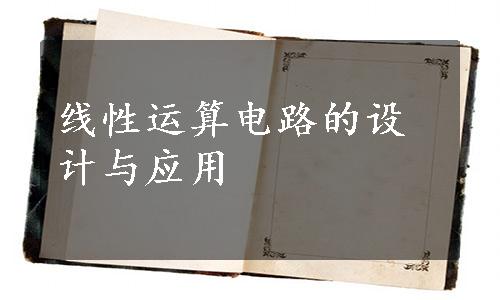 线性运算电路的设
计与应用